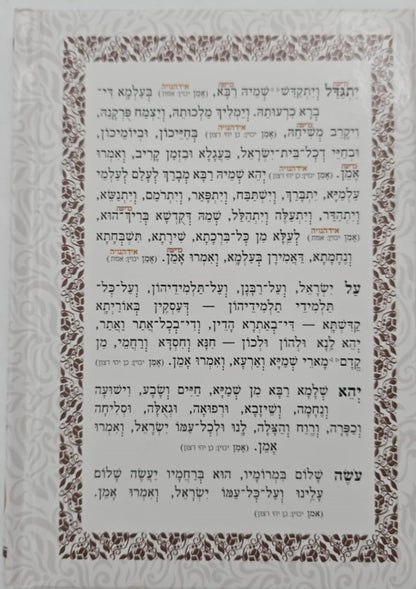 יִתְגַּדַּל וְיִתְקַדַּשׁ שְׁמֵיהּ רַבָּא, (אָמֵן יכוין: אמת) בְּעָלְמָא דִּי־
בְרָא כִרְעוּתֵהּ. וְיַמְלִיךְ מַלְכוּתֵהּ, וְיַצְמַח פֻּרְקָנֵהּ,
וִיקָרֵב מְשִׁיחֵהּ, (אָמֵן יכוין: כן יהי רצון) בְּחַיֵּיכוֹן, וּבְיוֹמֵיכוֹן,
וּבְחַיֵּי דְכָל־בֵּית־יִשְׂרָאֵל, בַּעֲגָלָא וּבִזְמַן קָרִיב, וְאִמְרוּ
אָמֵן. (אָמֵן יכוין: כן יהי רצון) יְהֵא שְׁמֵיהּ רַבָּא מְבָרַךְ לְעָלַם לְעָלְמֵי
עָלְמַיָּא, יִתְבָּרַךְ, וְיִשְׁתַּבַּח, וְיִתְפָּאַר, וְיִתְרֹמַם, וְיִתְנַשֵּׂא,
וְיִתְהַדָּר, וְיִתְעַלֶּה וְיִתְהַלָּל, שְׁמֵהּ דְּקֻדְשָׁא בְּרִיךְ־הוּא,
(אָמֵן יכוין: אמת) לְעֵלָּא מִן כָּל־בִּרְכָתָא, שִׁירָתָא, תִּשְׁבְּחָתָא
וְנֶחֱמָתָא, דַּאֲמִירָן בְּעָלְמָא, וְאִמְרוּ אָמֵן. (אָמֵן יכוין: אמת)
עַל יִשְׂרָאֵל, וְעַל־רַבָּנָן, וְעַל־תַּלְמִידֵיהוֹן, וְעַל־כָּל־
תַּלְמִידֵי תַלְמִידֵיהוֹן — דְּעָסְקִין בְּאוֹרַיְתָא
קַדִּשְׁתָּא — דִּי־בְאַתְרָא הָדֵין, וְדִי־בְכָל־אֲתַר וַאֲתַר,
יְהֵא לָנָא וּלְהוֹן וּלְכוֹן — חִנָּא וְחִסְדָּא וְרַחֲמֵי, מִן
קֳדָם־מָארֵי שְׁמַיָּא וְאַרְעָא, וְאִמְרוּ אָמֵן. (אָמֵן יכוין: כן יהי רצון)
יְהֵא שְׁלָמָא רַבָּא מִן שְׁמַיָּא, חַיִּים וְשָׂבָע, וִישׁוּעָה
וְנֶחָמָה, וְשֵׁיזָבָא, וּרְפוּאָה, וּגְאֻלָּה, וּסְלִיחָה
וְכַפָּרָה, וְרֶוַח וְהַצָּלָה, לָנוּ וּלְכָל־עַמּוֹ יִשְׂרָאֵל, וְאִמְרוּ
אָמֵן. (אָמֵן יכוין: כן יהי רצון)
עֹשֶׂה שָׁלוֹם בִּמְרוֹמָיו, הוּא בְּרַחֲמָיו יַעֲשֶׂה שָׁלוֹם
עָלֵינוּ וְעַל־כָּל־עַמּוֹ יִשְׂרָאֵל, וְאִמְרוּ אָמֵן.
(אמן יכוין: כן יהי רצון)